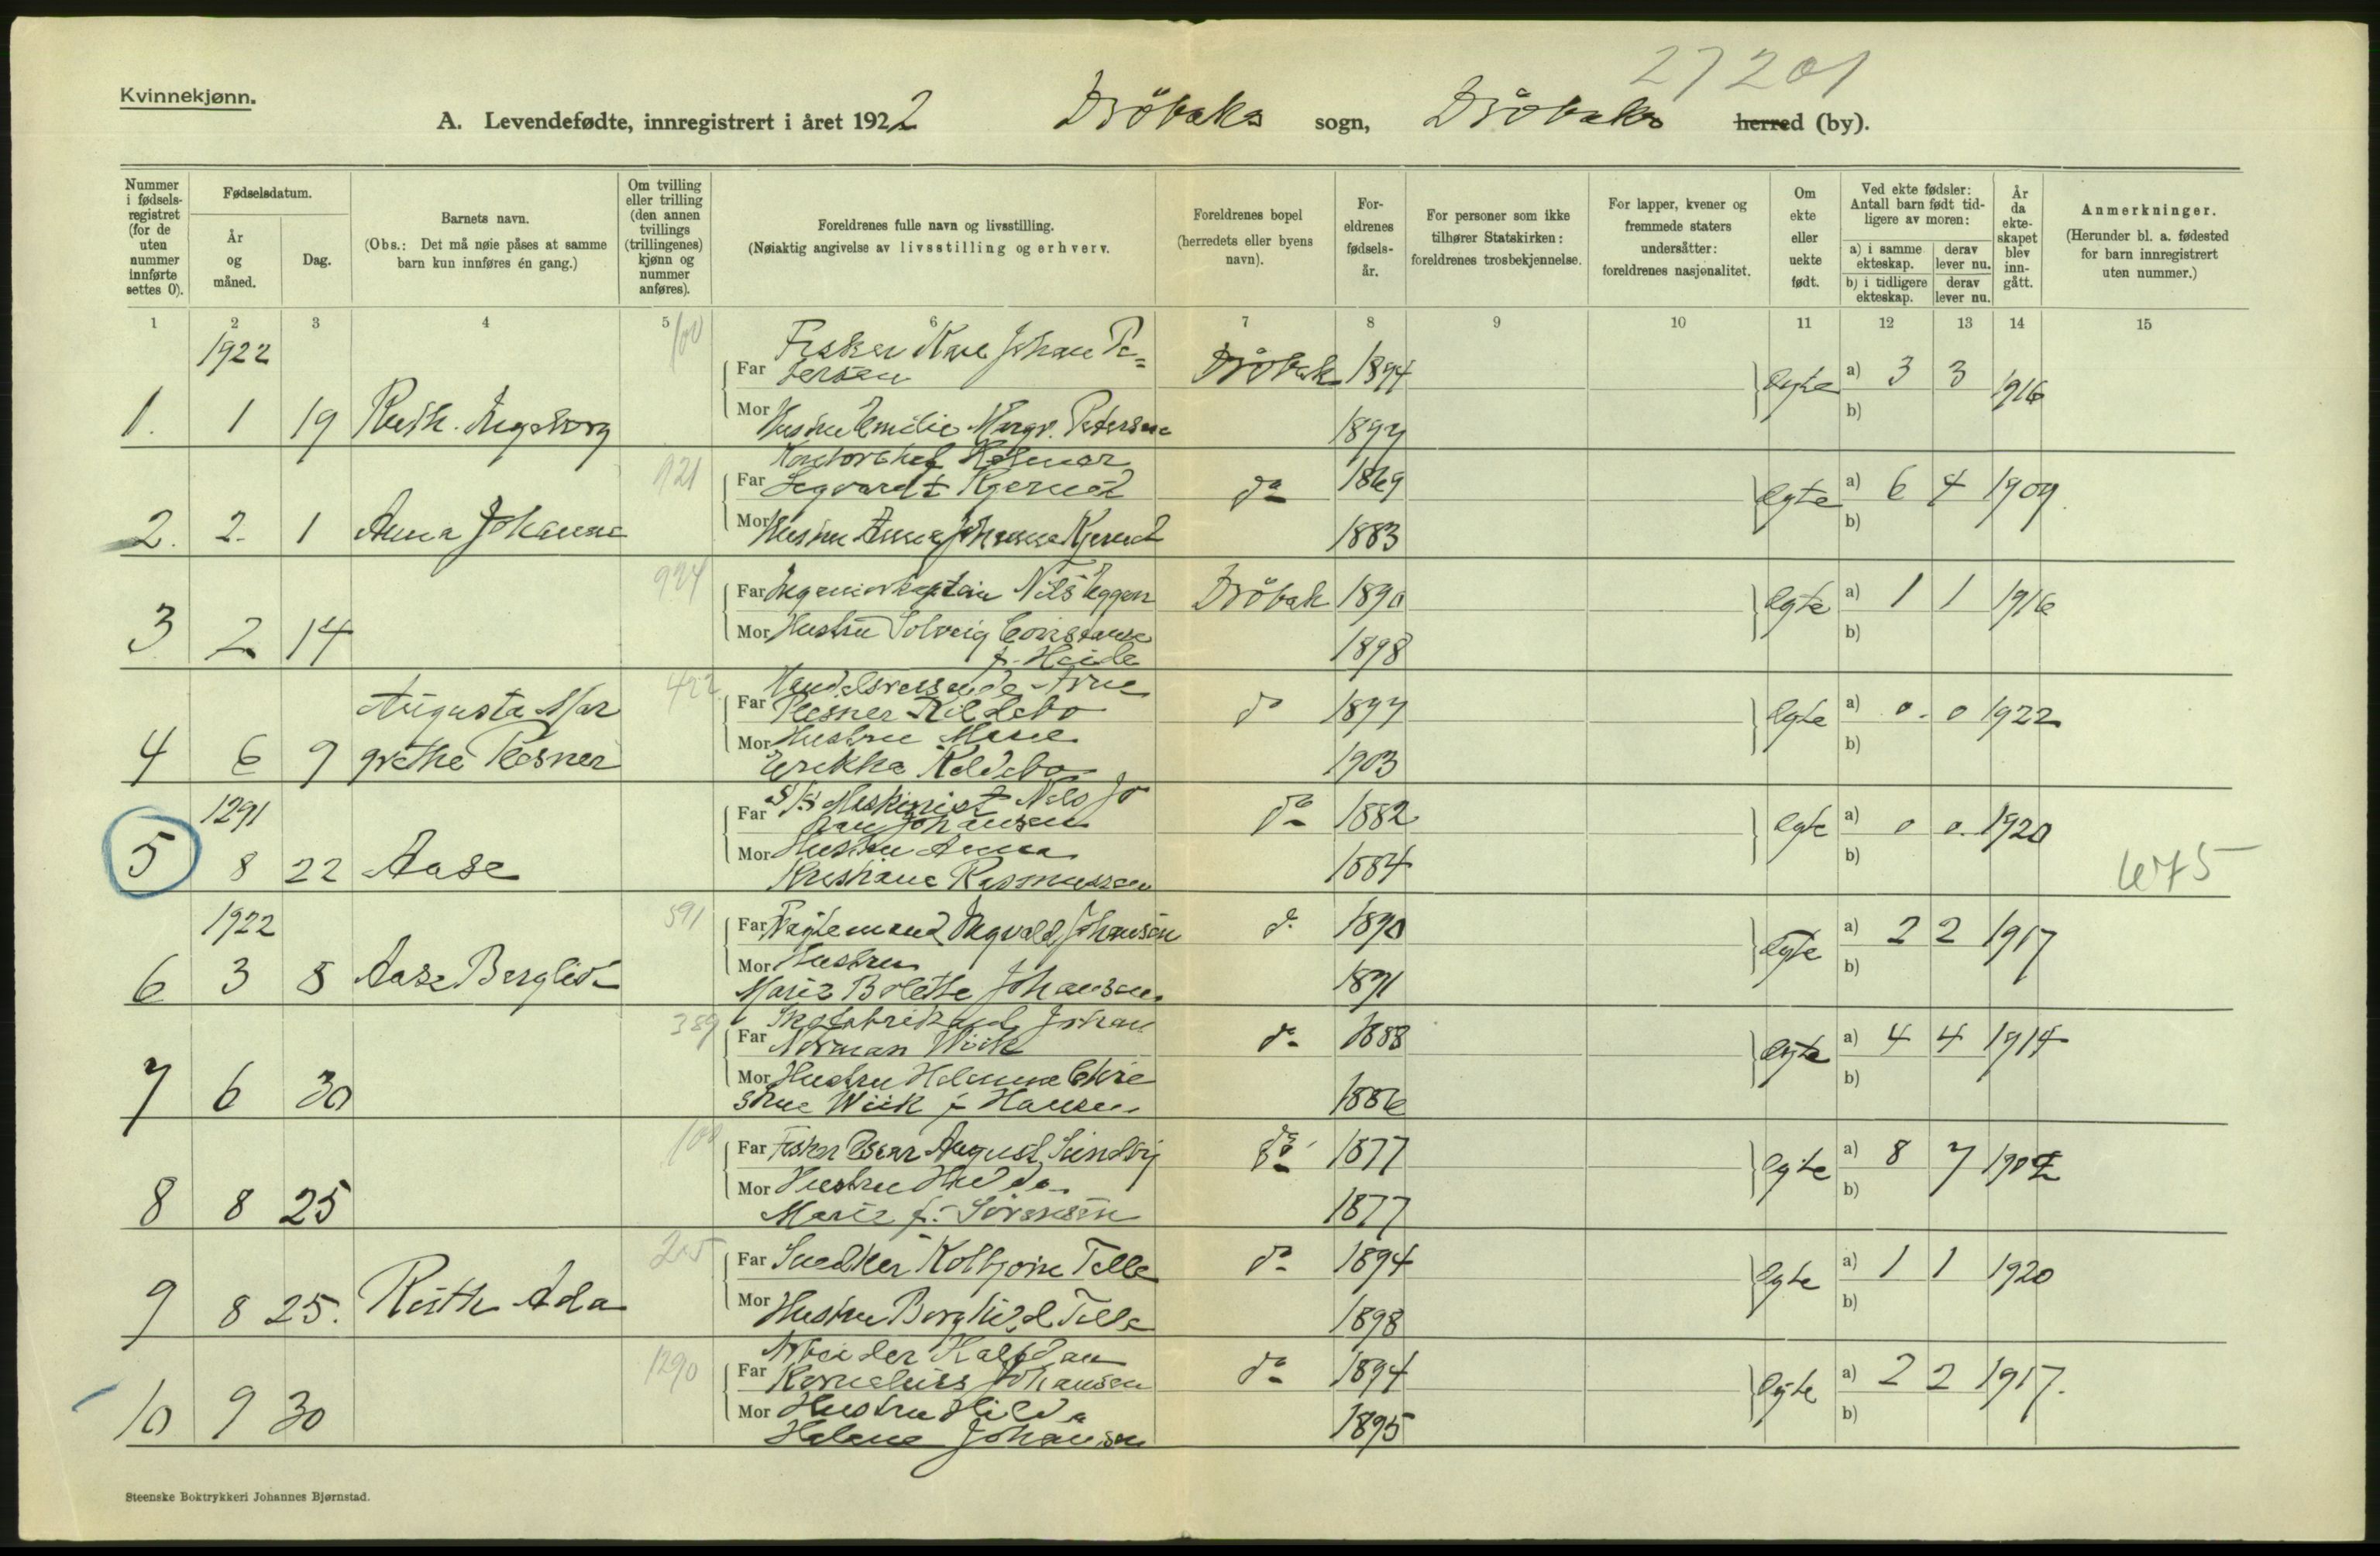 27201
Kvinnekjønn.
A. Levendefødte, innregistrert i året 1922 Dröbaks sogn, Dröbaks herred (by).
Nummer i fødselsregistret (for de uten nummer innførte settes 0).
Fødselsdatum.
År og måned.
Dag.
Barnets navn.
(Obs.: Det må nøie påses at samme barn kun innføres én gang.)
Om tvilling eller trilling (den annen tvillings (trillingenes) kjønn og nummer anføres).
Foreldrenes fulle navn og livsstilling.
(Nøiaktig angivelse av livsstilling og erhverv.
Foreldrenes bopel (herredets eller byens navn).
Foreldrenes fødselsår.
For personer som ikke tilhører Statskirken: foreldrenes trosbekjennelse.
For lapper, kvener og fremmede staters undersåtter: foreldrenes nasjonalitet.
Om ekte eller uekte født.
Ved ekte fødsler: Antall barn født tidligere av moren:
a) i samme ekteskap. derav lever nu.
b) i tidligere ekteskap. derav lever nu.
År da ekteskapet blev inngått.
Anmerkninger.
(Herunder bl. a. fødested for barn innregistrert uten nummer.)
1 2 3 4 5 6 7 8 9 10 11 12 13 14 15
1922 100 Fisker Karl Johan Pe=
Far tersen Dröbak 1894 Egte a) 3 3 1916
1. 1 19 Ruth Ingeborg Mor Hustru Emilie Margr. Petersen 1897 b)
921 Kontorchef Helmer
Far Segvardt Kjerud do 1869 Egte a) 6 4 1907
2. 2 1 Anna Johanne Mor Hustru Anna Johanne Kjerud 1883 b)
924 Far Ingeniørkaptein Nils Eggen Dröbak 1890 Egte a) 1 1 1916
3 2 14 Mor Hustru Solveig Constanse 1898 b)
f. Heide
422 Handelsreisende Arne
Augusta Mar Far Plesner Kildebo do 1897 Egte a) 0 0 1922
4 6 9 grethe Plesner Mor Hustru Marie b)
Erikka Kildebo 1903
1291 S/S Maskinist Nils Jo
Far han Johansen do 1882 Egte a) 0 0 1920
5 8 22 Aase Mor Hustru Anna b)
Kristiane Rasmussen 1884 675
1922 591 Far Ingvald Johansen do 1890 Egte a) 2 2 1917
6 3 8 Aase Bergliot Mor Hustru b)
Marie Bolette Johansen 1891
389 Skofabrikant Johan
Far Norman Wiik do 1888 Egte a) 4 4 1914
7 6 30 Mor Hustru Helmine Chri b)
stine Wiik f. Hansen 1886
100 Far Fisker Oscar August Sundby do 1877 Egte a) 8 7 1902
8 8 25 Mor Hustru Hulda b)
Marie f. Sörensen 1877
205 Far Snedker Kolbjörn Telle do 1894 Egte a) 1 1 1920
9 8 25. Ruth Ada Mor Hustru Borghild Telle 1898 b)
1290 Arbeider Halfdan
Far Kornelius Johansen do 1894 Egte a) 2 2 1917.
10 9 30 Mor Hustru Hilda b)
Helene Johansen 1895
Steenske Boktrykkeri Johannes Bjørnstad.